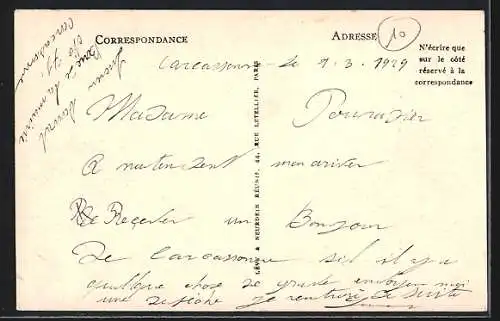 CORRESPONDANCE
ADRESSE
10
N'écrire que
sur le côté
réservé à la
correspondance
Carcassonne le 1.3.1929
Madame Pouradier
A natendent mon ariver
Re Recevter un Bonjour
De Carcassonne sil il y a
quelque chose de grave envoyer moi
une depeche je rentrerè de suite
LÉVY & NEURDEIN RÉUNIS, 44, RUE LETELLIER, PARIS
Carcassonne